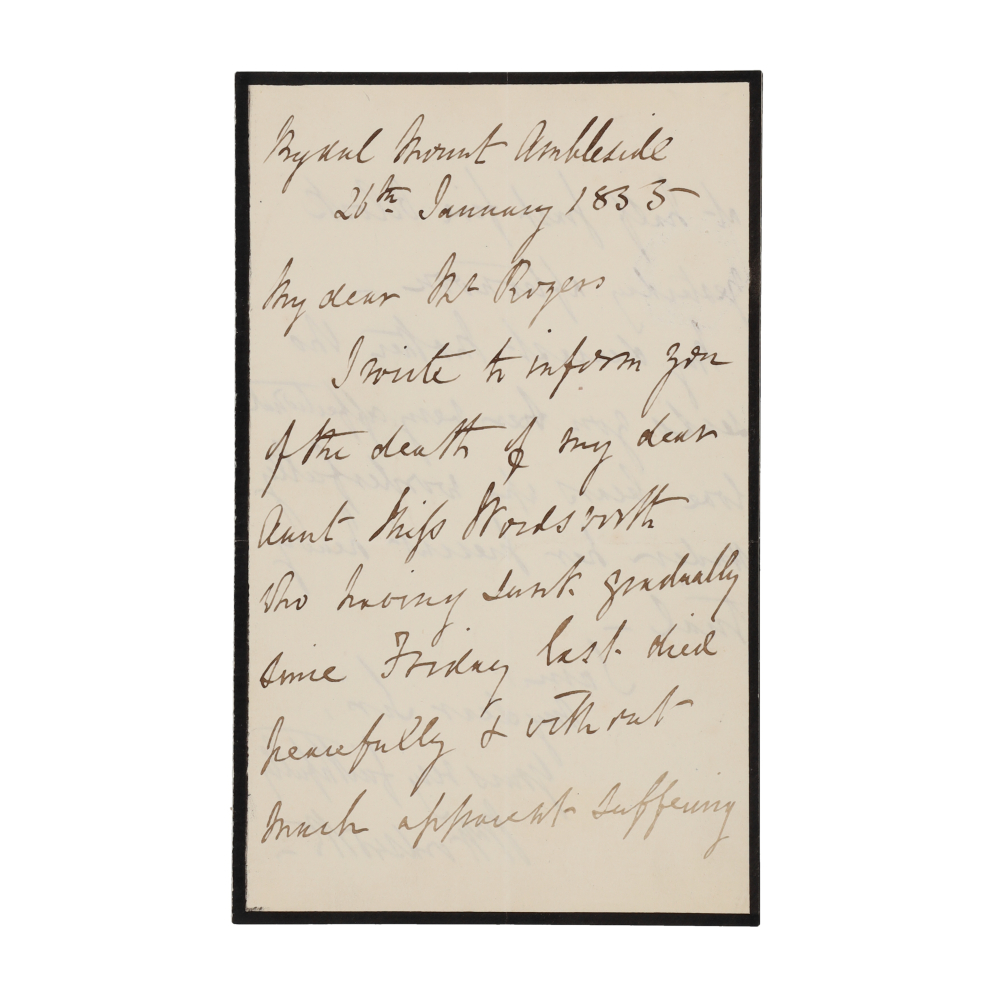 Rydal Mount Ambleside
26th January 1855
My dear Mr Rogers
I write to inform you
of the death of my dear
Aunt Miss Wordsworth
who having sunk gradually
since Friday last died
peacefully & without
much apparent suffering